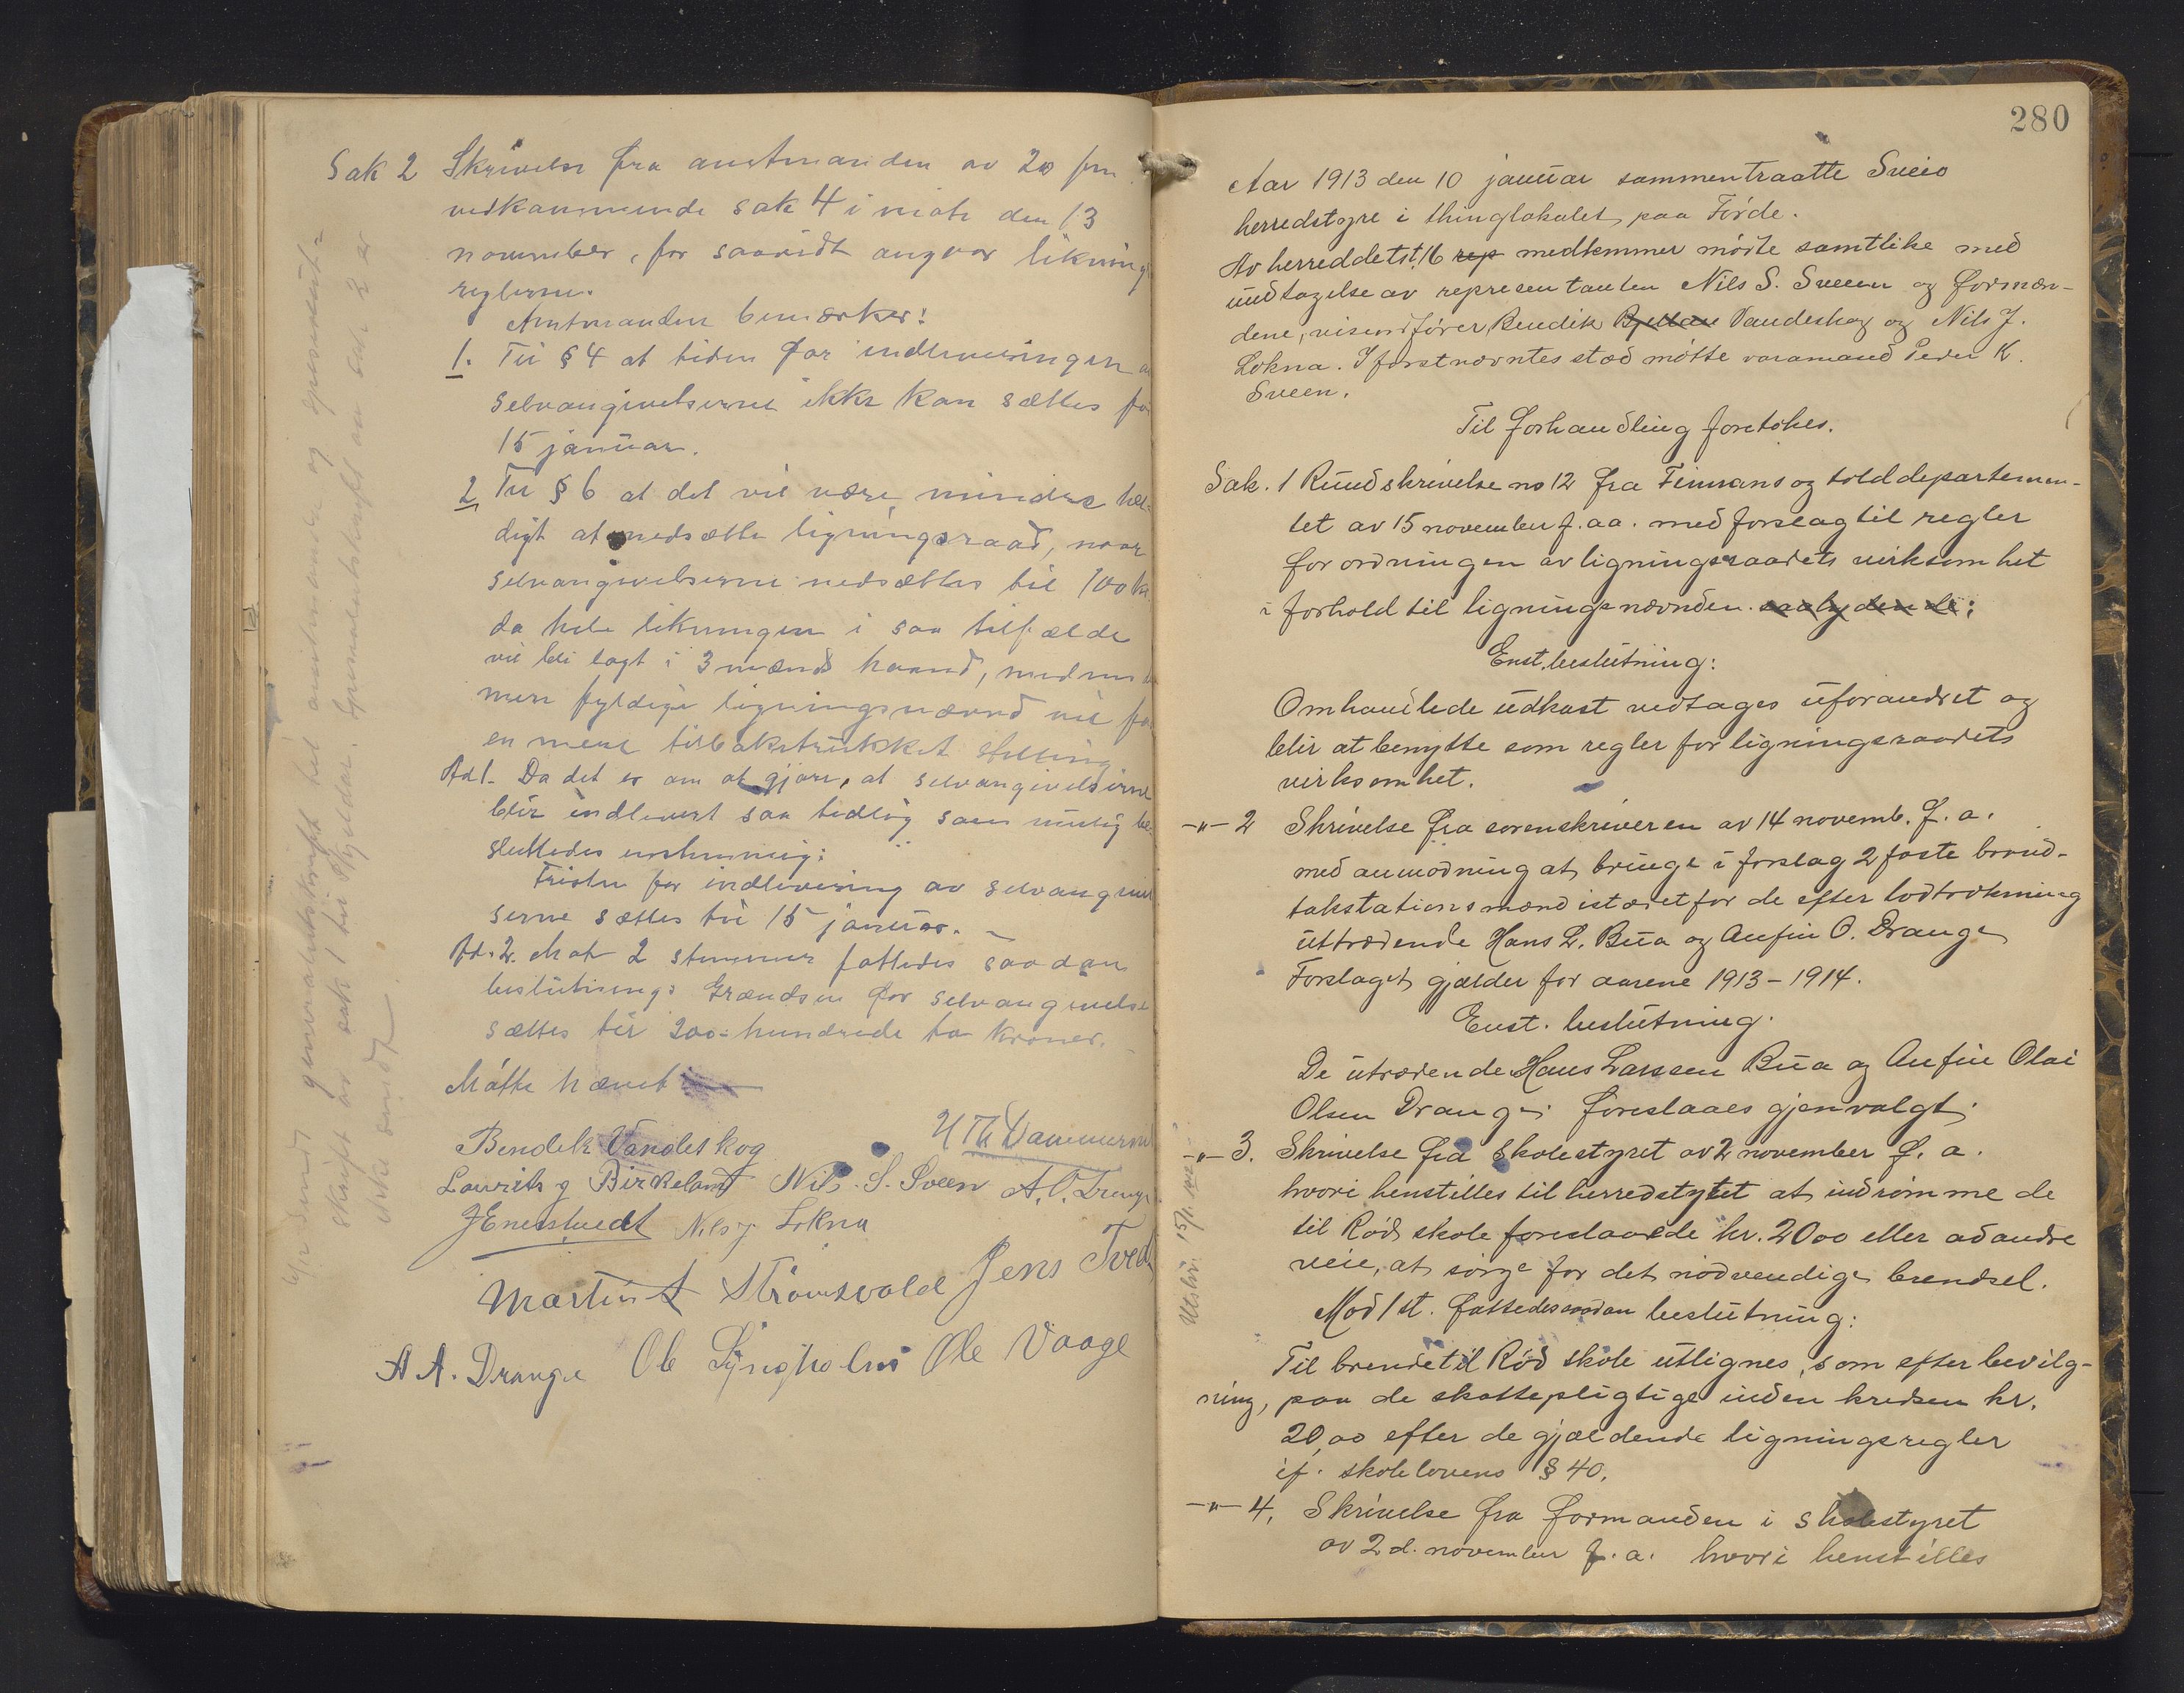 Sak 2 Skrivelse fra amtmanden av 20 fm.
vedkommende sak 4 i møte den 13
november, for saavidt angaar liknings
reglerne.
Amtmanden bemærker:
1. Til § 4 at tiden for indleveringen av
selvangivelserne ikke kan sættes før
15 januar.
2 Til § 6 at det vil være mindre hel-
digt at nedsætte ligningsraad, naar
selvangivelserne nedsættes til 100 kr.
da hele likningen i saa tilfælde
vil bli lagt i 3 mænds haand, medens
men fyldige ligningsnævnd vil faa
en mere tilbaketrukket stilling
Ad 1. Da det er om at gjøre, at selvangivelserne
blir indlevert saa tidlig som mulig be-
sluttedes enstemmig:
Fristen for indlevering av selvangivel
serne sættes til 15 januar. –
Ad. 2. Mot 2 stemmer fattedes saadan
beslutning: Grændsen for selvangivelse
sættes til 200 = hundrede to kroner.
Møtte hævet
H Th Dammern
Bendik Vandeskog
Laurits J Birkeland Nils. S. Sveen A. O. Drange
J Enerstvedt Nils J Lokna
Martin A Strømsvold Jens Tvedt
A A. Drange Ole Lyngholm Ole Vaage
6/12 sendt generalutskrift til amtmanden og spesialut-
skrift av sak 1 til Skjoldar. Grundutskrift av sak 2 er
ikke sendt
280
Aar 1913 den 10 januar sammentraatte Sveio
herredstyre i thinglokalet paa Førde.
Av herreddets 16 rep medlemmer møtte samtlike med
undtagelse av representanten Nils S. Sveen og formæn-
dene, viseordfører Bendik Bjelland Vandeskog og Nils J.
Lokna. I førstnævntes stæd møtte varamand Peder K.
Sveen.
Til forhandling foretokes.
Sak. 1 Rundskrivelse no 12 fra Finnans og tolddepartemen-
tet av 15 november f. aa. med forslag til regler
for ordningen av ligningsraadets virksomhet
i forhold til ligningsnævnden. saalydende:
Enst. beslutning:
Omhandlede udkast vedtages uforandret og
blir at benytte som regler for ligningsraadets
virksomhet.
–"– 2 Skrivelse fra sorenskriveren av 14 novemb. f. a.
med anmodning at bringe i forslag 2 faste brand-
takstationsmænd istædet for de efter lodtrækning
uttrædende Hans L. Bua og Anfin O. Drange
Forslaget gjælder for aarene 1913 – 1914.
Enst. beslutning.
De utrædende Hans Larssen Bua og Anfin Olai
Olsen Drange foreslaaes gjenvalgt.
–"– 3. Skrivelse fra skolestyret av 2 november f. a.
hvori henstilles til herredstyret at indrømme de
til Rød skole foreslaaede kr. 2000 eller ad andre
veie, at sørge for det nødvendige brendsel.
Mod 1 st. fattedes saadan beslutning:
Til brende til Rød skole utlignes, som efter bevilg-
ning, paa de skattepligtige inden kredsen kr.
20,00 efter de gjældende ligningsregler
cf. skolelovens § 40.
–"– 4. Skrivelse fra formanden i skolestyret
av 2 d. november f. a. hvori henstilles
Utskr. 15/1. 1912